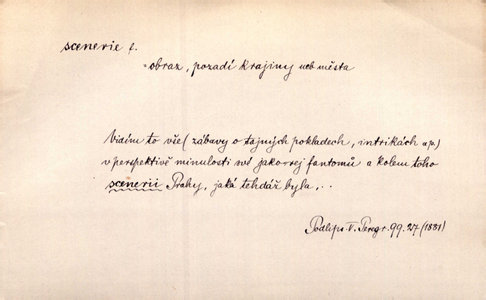 scenerie f.
=obraz, pozadí krajiny neb města
Vidím to vše (zábavy o tajných pokladech, intrikách a p.)
v perspektivě minulosti své jako rej fantomů a kolem toho
scenerii Prahy, jaká tehdáž byla,..
Podlips. V. Peregr. 99.27 (1881)